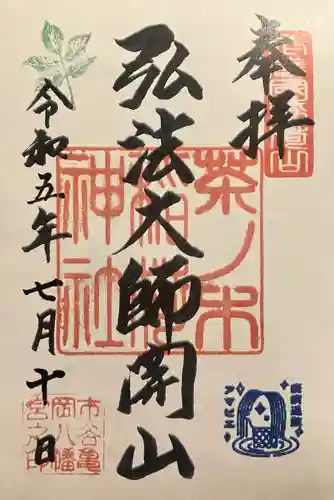 奉拝
弘法大師開山
令和五年七月十日
茶ノ木
稲荷
神社
市谷亀
岡八幡
宮之印